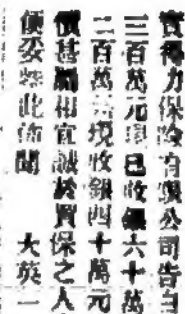 寳得力保險有限公司告白
三百萬元現已收銀六十萬
二百萬元現收銀四十萬元
價甚廉相宜誠於買保之人
便妥此佈聞 大英一